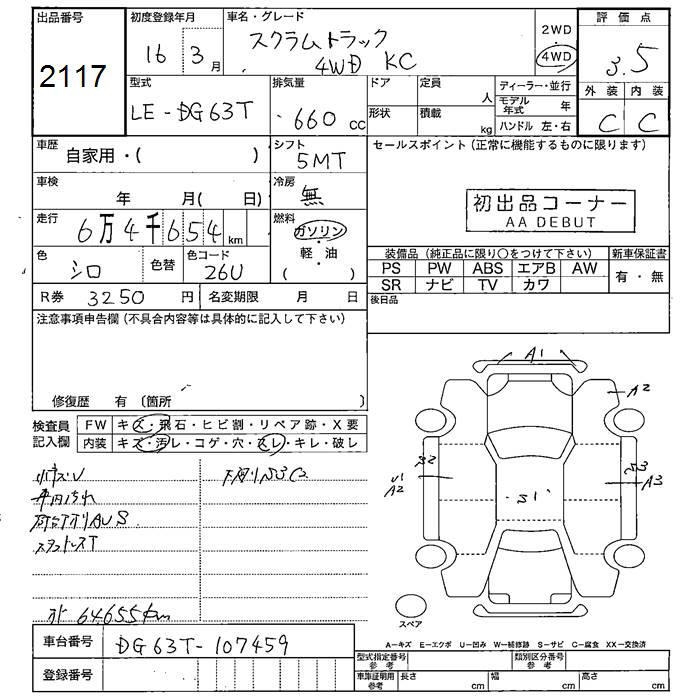 出品番号 初度登録年月 車名・グレード 2WD 評価点
2117 16 3月 スクラムトラック 4WD KC 4WD 3.5
型式 排気量 ドア 定員 人 ディーラー・並行 外装 内装
LE-DG63T 660cc 形状 積載 kg モデル年式 年 C C
ハンドル 左・右
車歴 自家用・( ) シフト 5MT セールスポイント(正常に機能するものに限ります)
車検 年 月( 日) 冷房 無
初出品コーナー
AA DEBUT
走行 6万4千654km 燃料 ガソリン・軽・油 ( )
色 シロ 色替 色コード 26U
装備品(純正品に限り○をつけて下さい) 新車保証書
PS PW ABS エアB AW 有・無
SR ナビ TV カワ
R券 3250円 名変期限 月 日 後日品
注意事項申告欄(不具合内容等は具体的に記入して下さい)
修復歴 有(箇所 )
検査員記入欄 FW キズ・飛石・ヒビ割・リペア跡・X要
内装 キズ・汚レ・コゲ・穴・スレ・キレ・破レ
A1
A2
S1
A2
A3
スタッドレスT
64,655km
スペア
A-キズ E-エクボ U-凹み W-補修跡 S-サビ C-腐食 XX-交換済
車台番号 DG63T-107459
型式指定番号 参考 類別区分番号 参考
登録番号
車庫証明用 参考 長さ cm 幅 cm 高さ cm